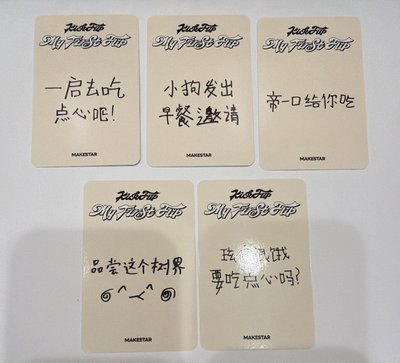 KickFlip
My First Flip
一启去吃
点心吧!
MAKESTAR
KickFlip
My First Flip
小狗发出
早餐邀请
MAKESTAR
KickFlip
My First Flip
帝一口给你吃
MAKESTAR
KickFlip
My First Flip
品尝这个树界
MAKESTAR
KickFlip
My First Flip
饿
要吃点心吗?
MAKESTAR